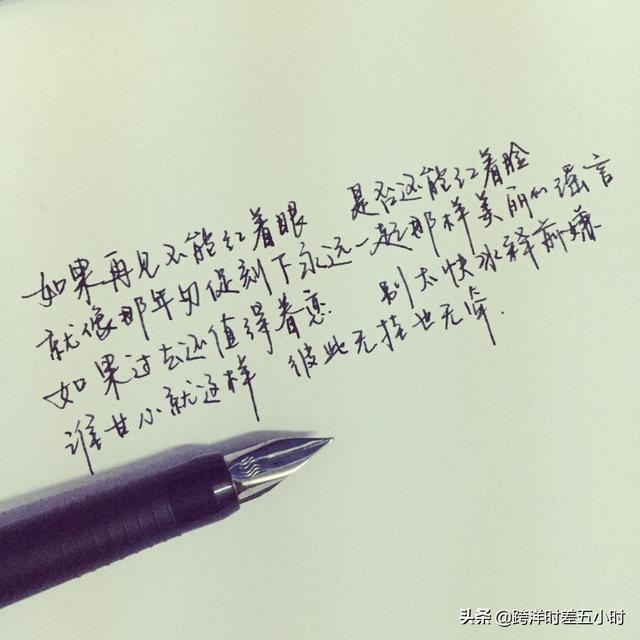 如果再见不能红着眼 是否还能红着脸
就像那年匆促刻下永远一起那样美丽的谣言
如果过去还值得眷恋 别太快冰释前嫌
谁甘心就这样 彼此无挂也无牵.
头条 @跨洋时差五小时